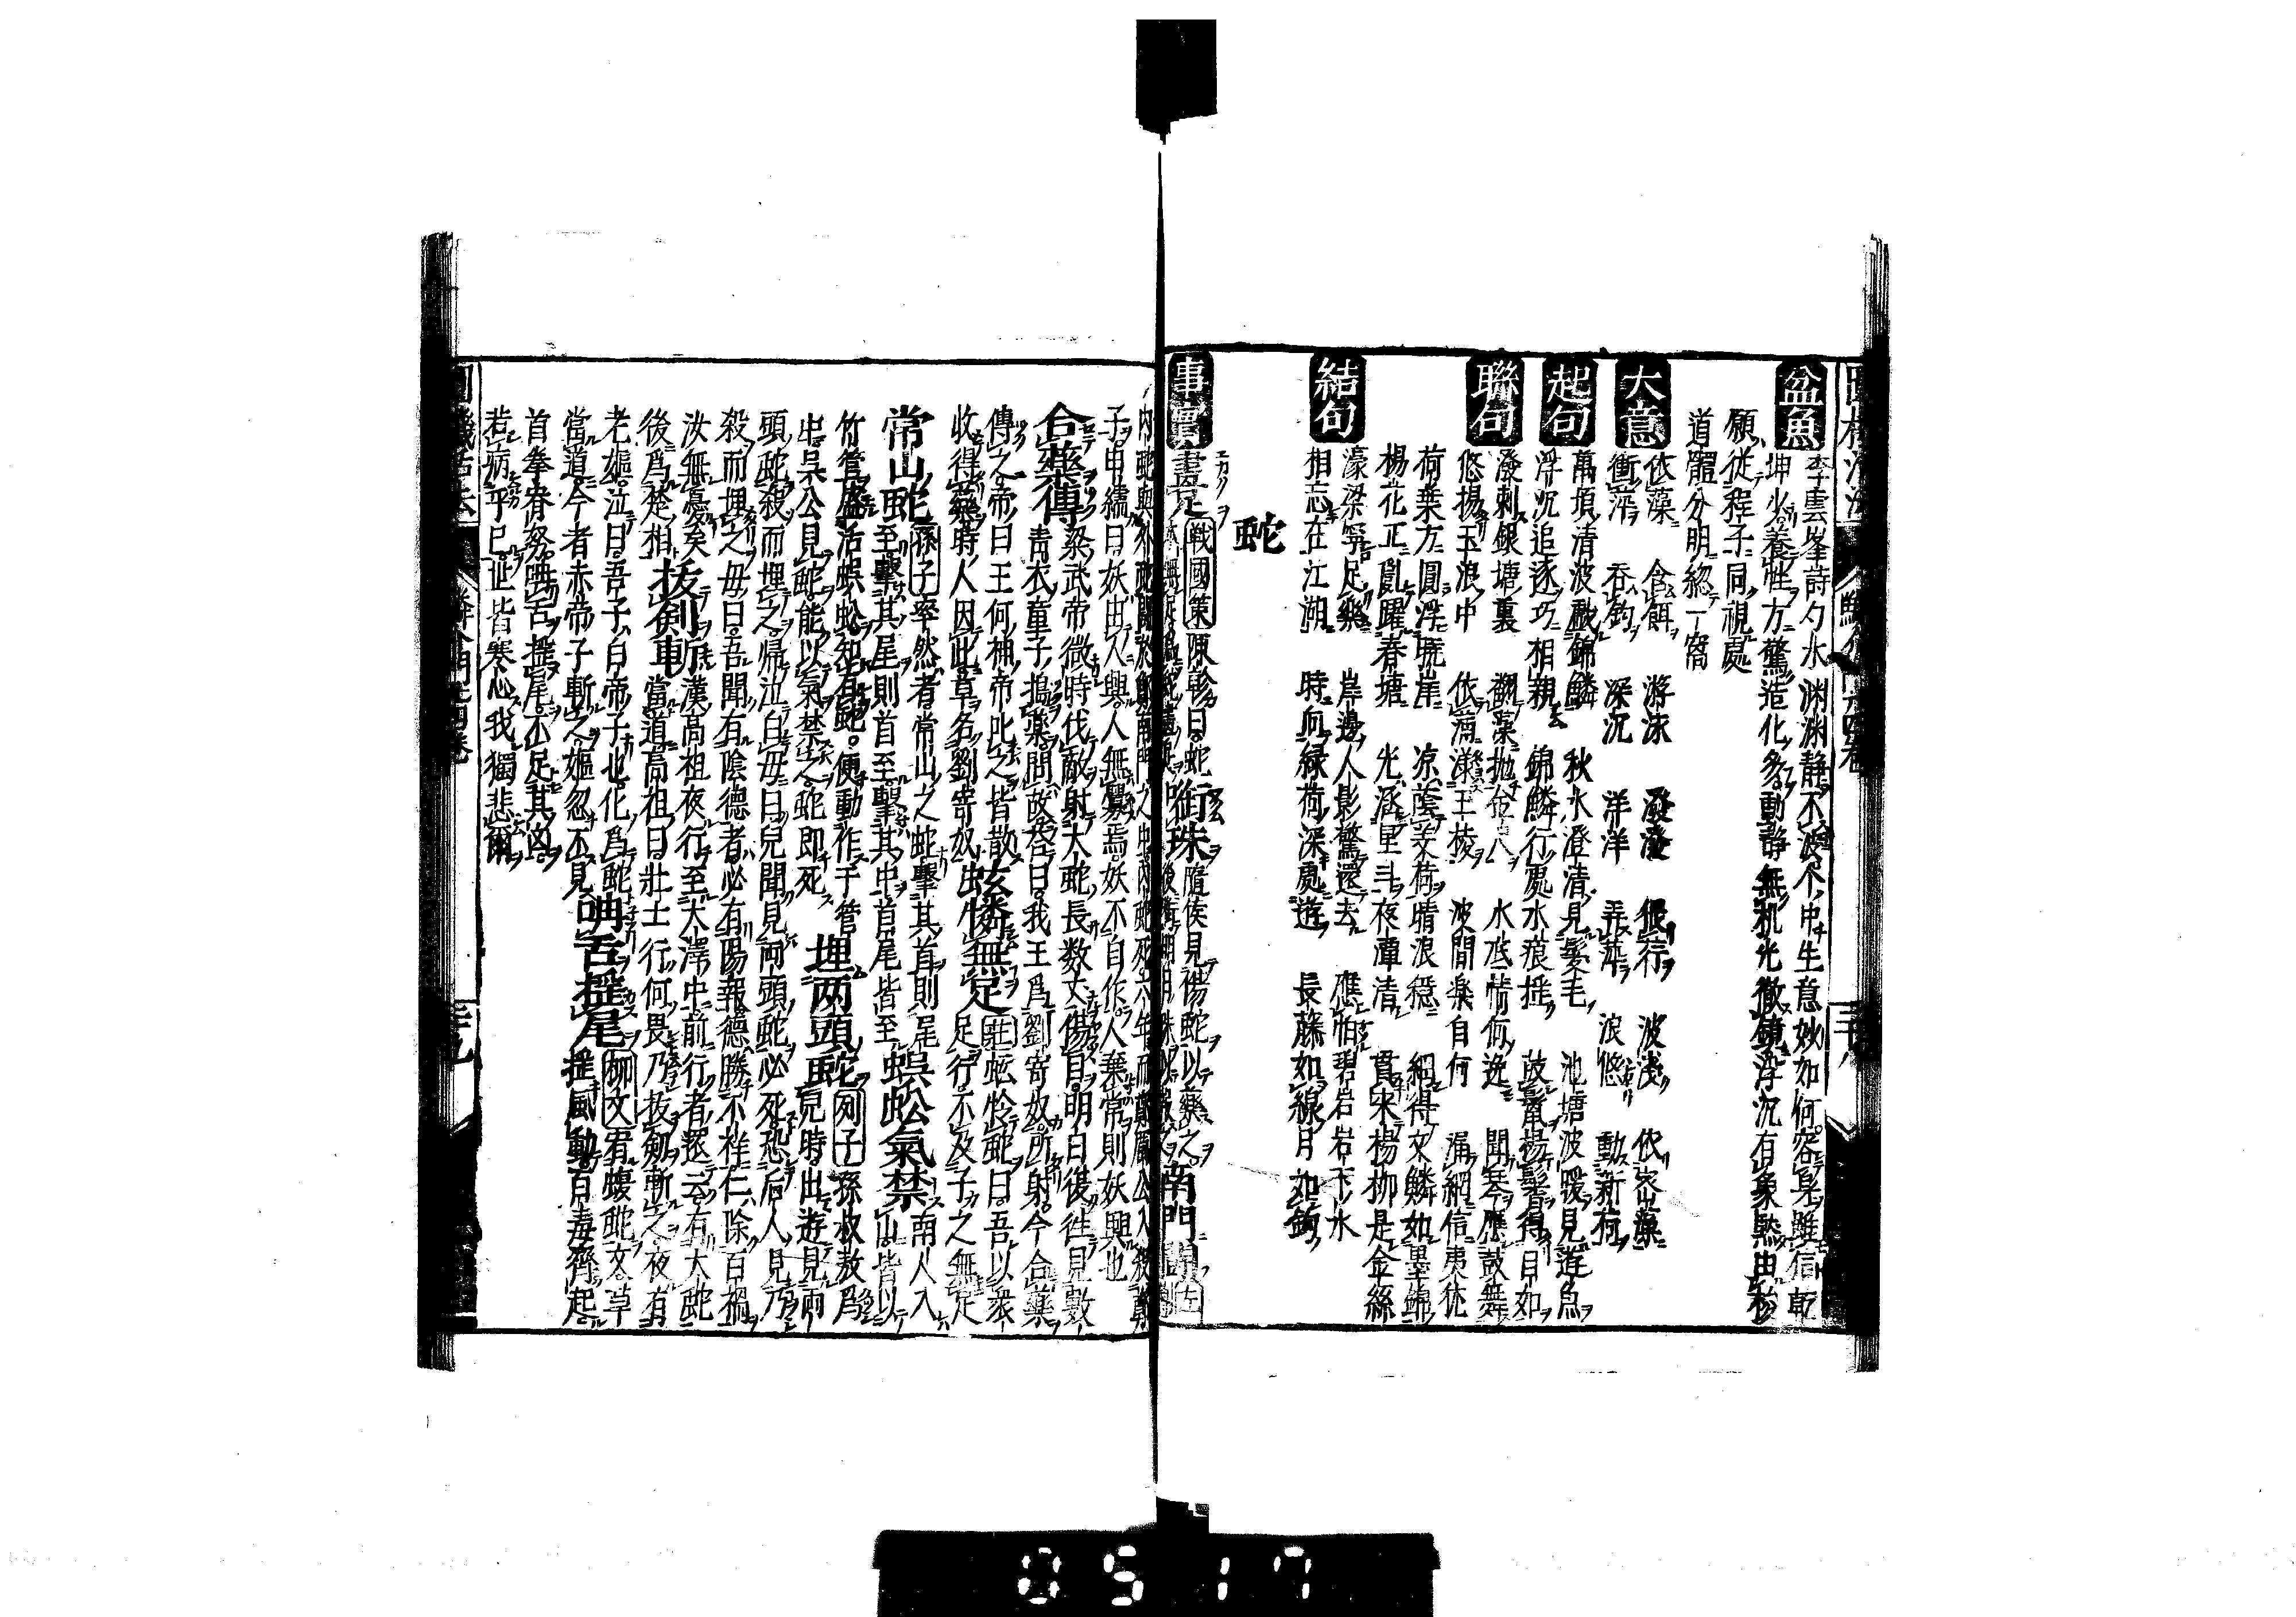 盆魚 李雲峯詩勺水渊渊静不波个中生意妙如何容身雖信乾
坤少養性方驚造化多動静無机光徹鏡浮沉有象黙由
願從程子同視處
道體分明緫一窩
大意 依藻 含餌 游泳 潑潑 侵行 波浅 依密藻
衝萍 吞鈎 深沉 洋洋 弄萍 浪悠 動新荷
起句 萬頃清波戯錦鱗 秋水澄清見髮毛 池塘波暖見遊魚
浮沉追逐巧相親 錦鱗行處水痕揺 鼓鬣揚鬐得自如
聯句 潑刺銀塘裏 翻藻抛 水底情何逸 聞琴應鼓舞
悠揚玉浪中 依蒲漾玉棱 波間楽自何 漏網信夷猶
荷葉方圓浮琥 凉蔭芰荷晴浪穏 網得文鱗如墨錦
楊花正亂躍春塘 光涵星斗夜潭清 貫来楊柳是金絲
結句 濠梁寧足樂 岸邊人影驚還去 應怕碧岩岩下水
相忘在江湖 時向緑荷深處遊 長藤如線月如鈎
蛇
事實 畫足 戦國策 陳軫曰蛇 啣珠 隨侯見傷蛇以藥之 南門
内蛇與外蛇鬪於鄭南門之中内蛇死六年而厲公入
子申繻曰妖由人興人無釁焉妖不自作人棄常則妖興也
合藥傳 梁武帝微時伐敵射大蛇長数丈傷目明日復往見數
青衣童子搗藥問故答曰我王爲劉寄奴所射今合藥
傳之帝曰王何神帝叱之皆散 蚿憐無足 荘蚿怜蛇曰吾以衆
收得藥時人因此草名劉寄奴 足行不及子之無足
常山蛇 孫子率然者常山之蛇擊其首則尾
至擊其尾則首至擊其中首尾皆至 蜈蚣氣禁 南人入
山皆以
竹管盛活蜈蚣知有蛇便動作于管
中吴公見蛇能以氣禁之蛇即死 埋两頭蛇 列子孫叔敖爲
兒時出遊見兩
頭蛇殺而埋之帰泣白母曰兒聞見兩頭蛇必死恐后人見乃
殺而埋之母曰吾聞有陰德者必有陽報德勝不祥仁除百禍
汝無憂矣
後爲楚相 抜剣斬 漢高祖夜行至大澤中前行者還云有大蛇
當道高祖曰壮士行何畏乃抜劔斬之夜有
老嫗泣曰吾子白帝子也化爲蛇
當道今者赤帝子斬之嫗忽不見 呥舌揺尾 柳文宥蝮蛇文草
揺風動百毒齊起
首拳脊努呥舌揺尾不足其凶
若病乎已世皆寒心我獨悲爾
0517